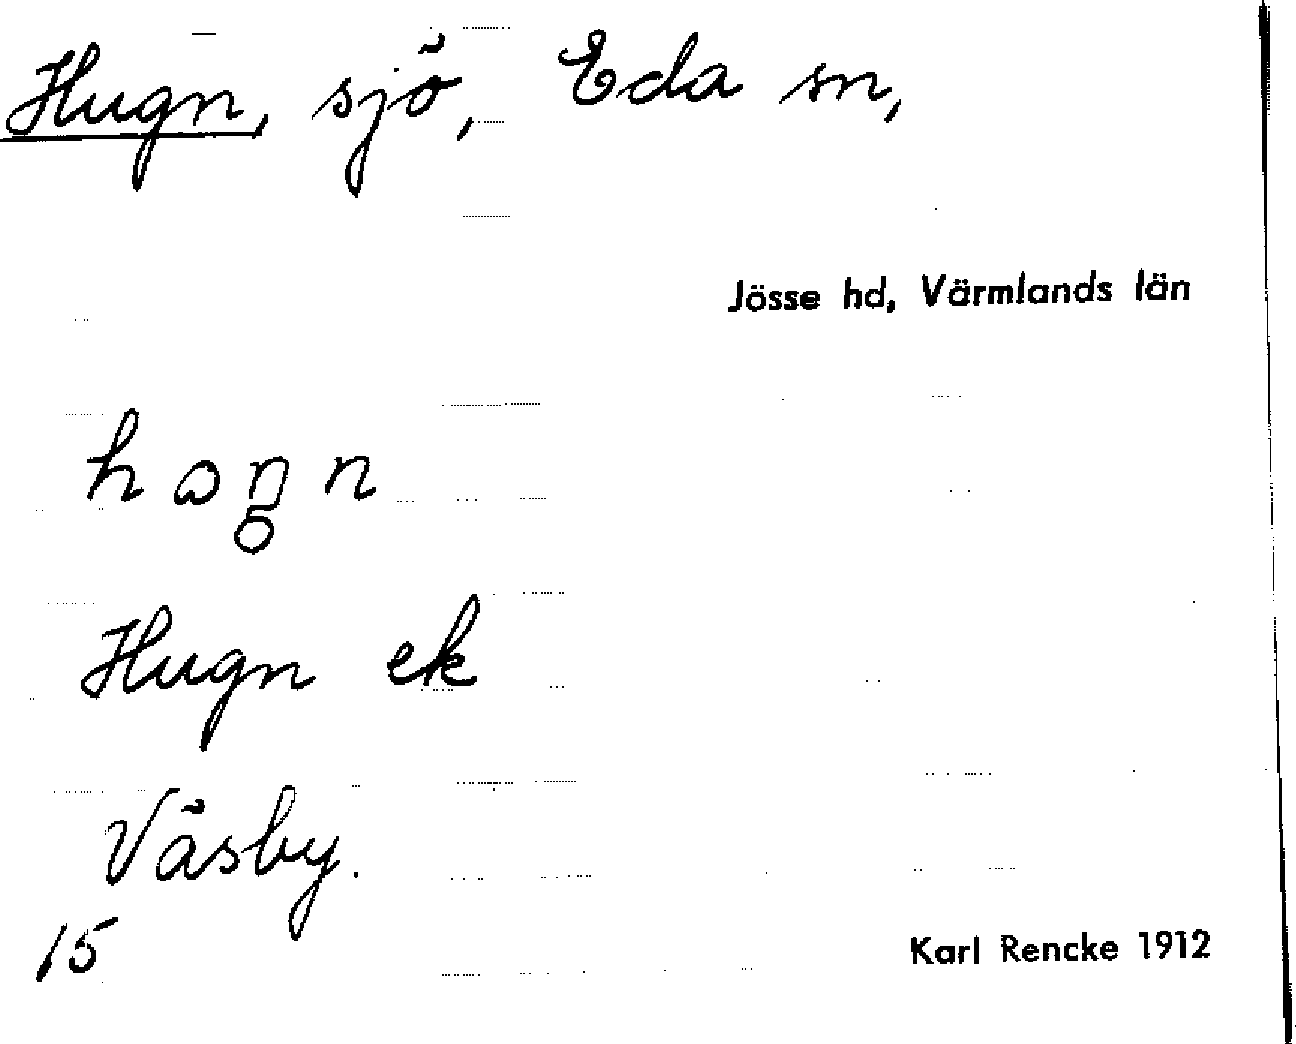 Hugn, sjö, Eda sn,
Jösse hd, Värmlands län
Hugn ek
Väsby.
15
Karl Rencke 1912